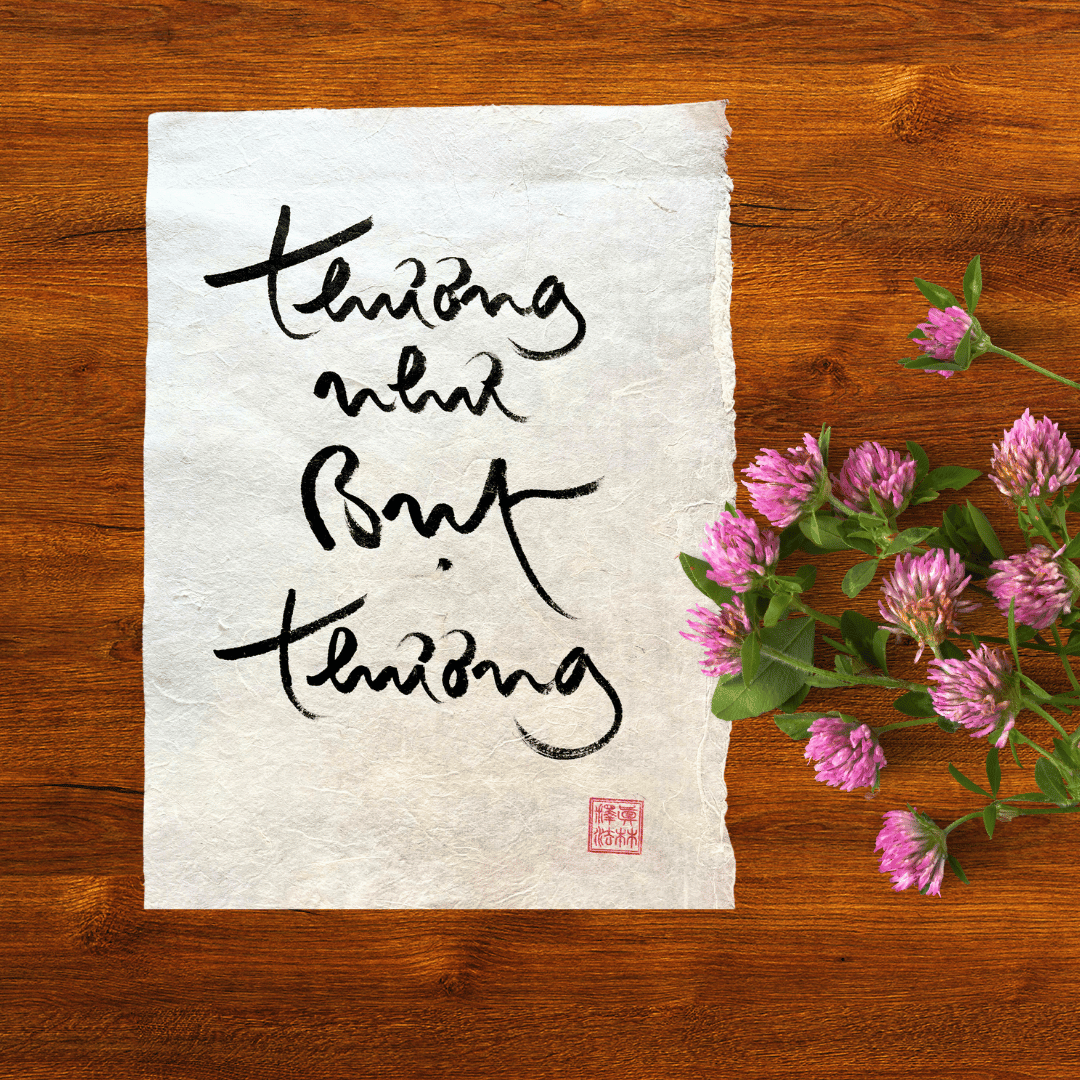 thương
như
Bụt
thương
眞林
法